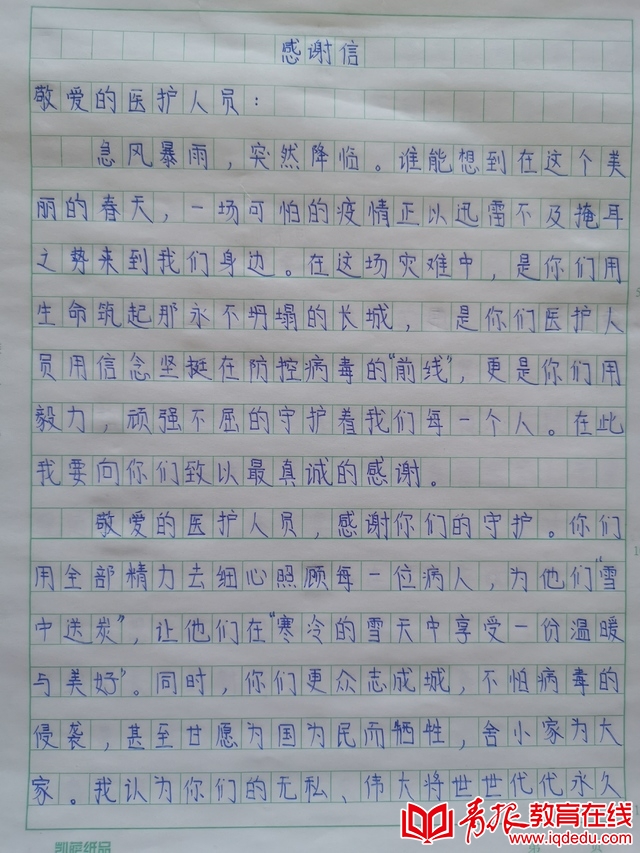 感谢信
敬爱的医护人员：
急风暴雨，突然降临。谁能想到在这个美
丽的春天，一场可怕的疫情正以迅雷不及掩耳
之势来到我们身边。在这场灾难中，是你们用
生命筑起那永不坍塌的长城，是你们医护人
员用信念坚挺在防控病毒的“前线”，更是你们用
毅力，顽强不屈的守护着我们每一个人。在此
我要向你们致以最真诚的感谢。
敬爱的医护人员，感谢你们的守护。你们
用全部精力去细心照顾每一位病人，为他们“雪
中送炭”，让他们在“寒冷的雪天中享受一份温暖
与美好”。同时，你们更众志成城，不怕病毒的
侵袭，甚至甘愿为国为民而牺牲，舍小家为大
家。我认为你们的无私、伟大将世世代代永久
青报教育在线
www.iqdedu.com
凯萨纸品